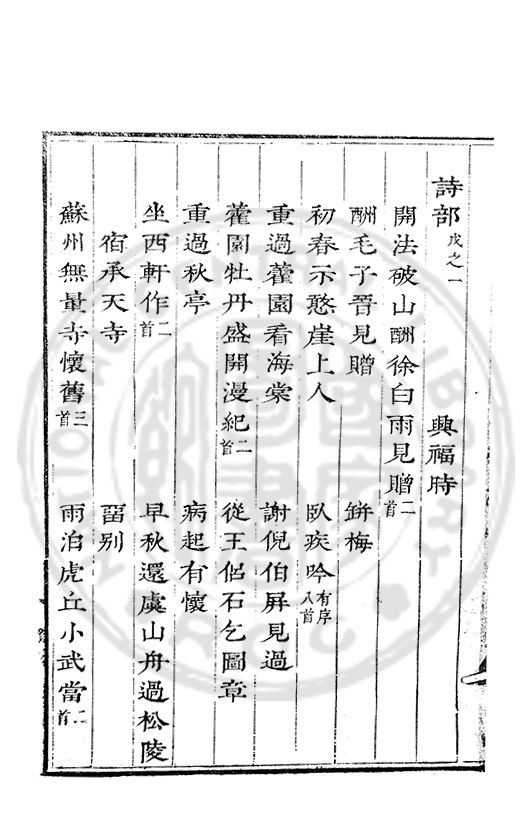 詩部戊之一　興福時
開法破山酬徐白雨見贈二首
酬毛子晉見贈　缾梅
初春示憨崖上人　臥疾吟有序八首
重過藿園看海棠　謝倪伯屏見過
藿園牡丹盛開漫紀二首　從王侶石乞圖章
重過秋亭　病起有懷
坐西軒作二首　早秋還虞山舟過松陵
宿承天寺　畱別
蘇州無量寺懷舊三首　雨泊虎丘小武當二首